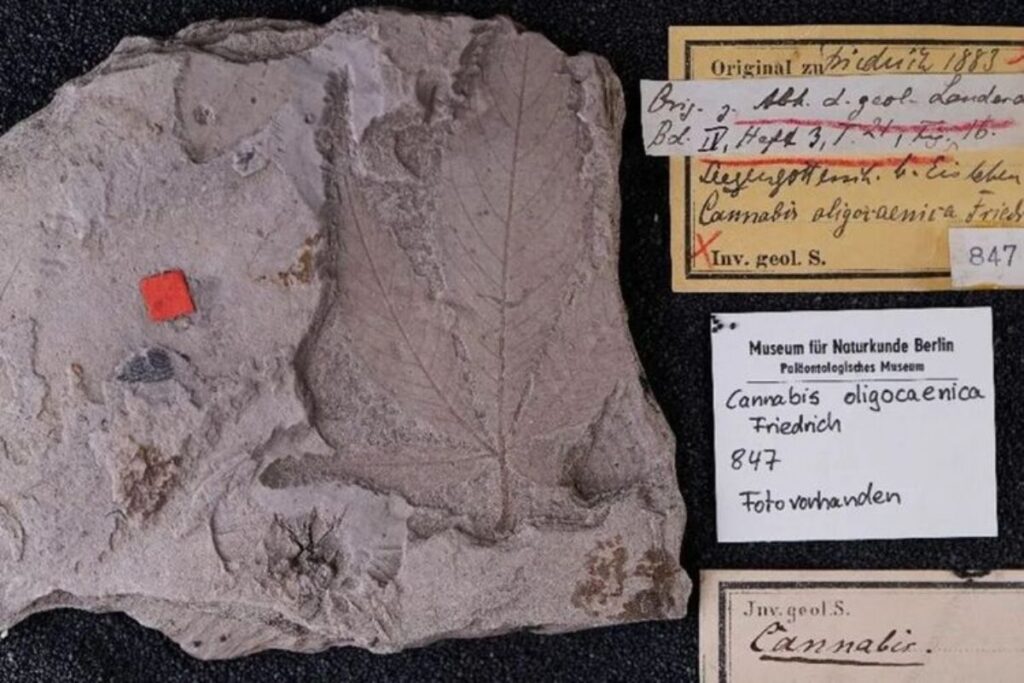 Original zu Friedrich 1883
Orig. z. Abh. d. geol. Landesa
Bd. IV, Heft 3, T. 21, Fig. 16.
b. Eisleben
Cannabis oligocaenica Friedr
Inv. geol. S.
847
Museum für Naturkunde Berlin
Paläontologisches Museum
Cannabis oligocaenica
Friedrich
847
Foto vorhanden
Inv. geol. S.
Cannabis.